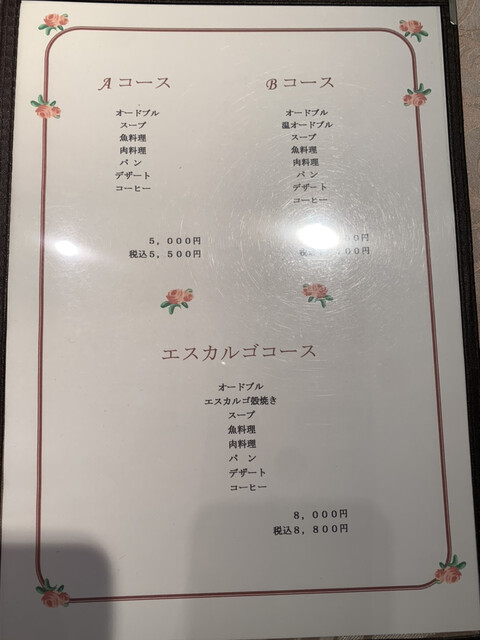 Aコース
オードブル
スープ
魚料理
肉料理
パン
デザート
コーヒー
5,000円
税込5,500円
Bコース
オードブル
温オードブル
スープ
魚料理
肉料理
パン
デザート
コーヒー
エスカルゴコース
オードブル
エスカルゴ殻焼き
スープ
魚料理
肉料理
パン
デザート
コーヒー
8,000円
税込8,800円